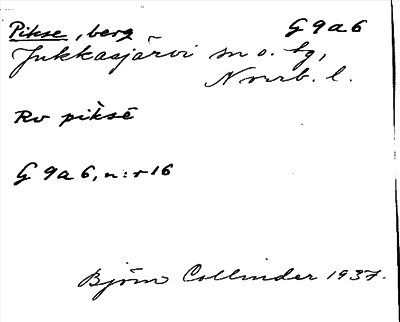 Pikse, berg G 9 a 6
Jukkasjärvi sn o. tg,
Norrb. l.
Rv piksē
G 9 a 6, n:r 16
Björn Collinder 1937.